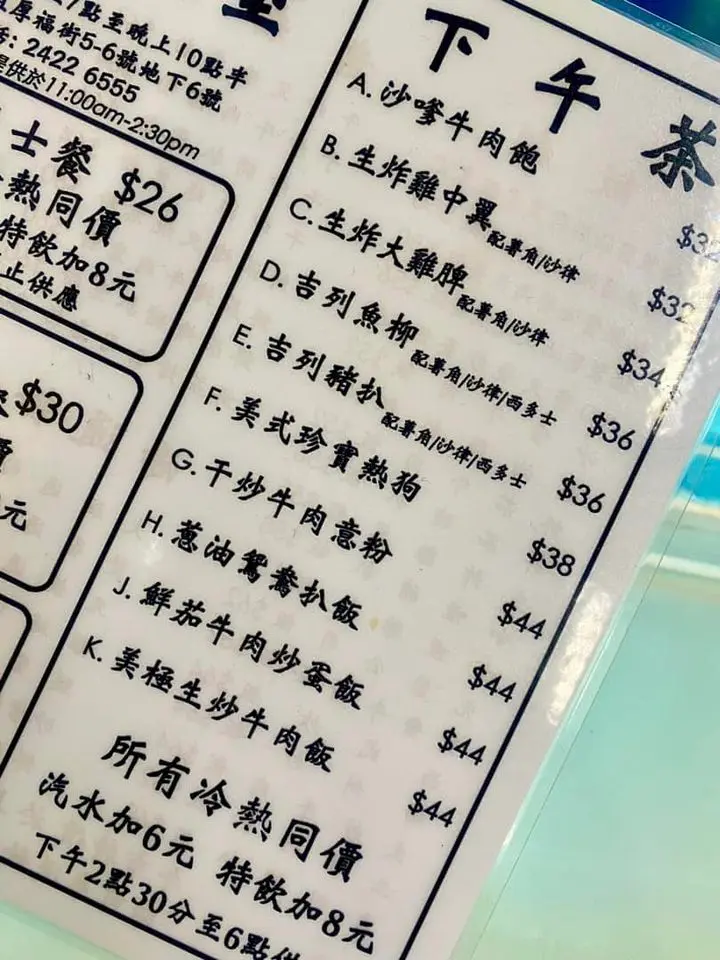 7點至晚上10點半
厚福街5-6號地下6號
: 2422 6555
提供於11:00am-2:30pm
士餐 $26
熱同價
特飲加8元
止供應
$30
元
下午茶
A. 沙嗲牛肉飽 $32
B. 生炸雞中翼 配薯角/沙律 $32
C. 生炸大雞脾 配薯角/沙律 $34
D. 吉列魚柳 配薯角/沙律/西多士 $36
E. 吉列豬扒 配薯角/沙律/西多士 $36
F. 美式珍寶熱狗 $38
G. 干炒牛肉意粉 $44
H. 蔥油鴛鴦扒飯 $44
J. 鮮茄牛肉炒蛋飯 $44
K. 美極生炒牛肉飯 $44
所有冷熱同價
汽水加6元 特飲加8元
下午2點30分至6點供